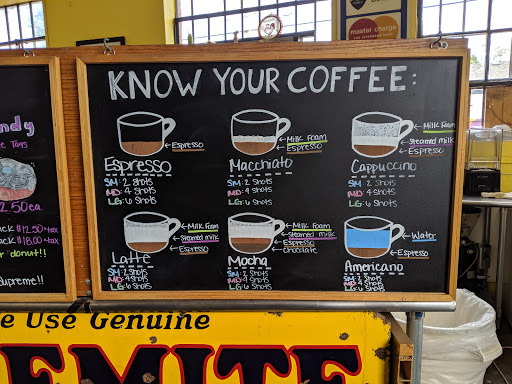 KNOW YOUR COFFEE:
Espresso
Espresso
SM: 2 Shots
MD: 4 Shots
LG: 6 Shots
Milk Foam
Espresso
Macchiato
SM: 2 Shots
MD: 4 Shots
LG: 6 Shots
Milk Foam
Steamed milk
Espresso
Cappuccino
SM: 2 Shots
MD: 4 Shots
LG: 6 Shots
Milk Foam
Steamed milk
Espresso
Latte
SM: 2 Shots
MD: 4 Shots
LG: 6 Shots
Milk Foam
Steamed milk
Espresso
Chocolate
Mocha
SM: 2 Shots
MD: 4 Shots
LG: 6 Shots
Water
Espresso
Americano
SM: 2 Shots
MD: 4 Shots
LG: 6 Shots
2.50 ea.
$12.50+tax
$18.00+tax
donut!!
supreme!!
master charge
Use Genuine